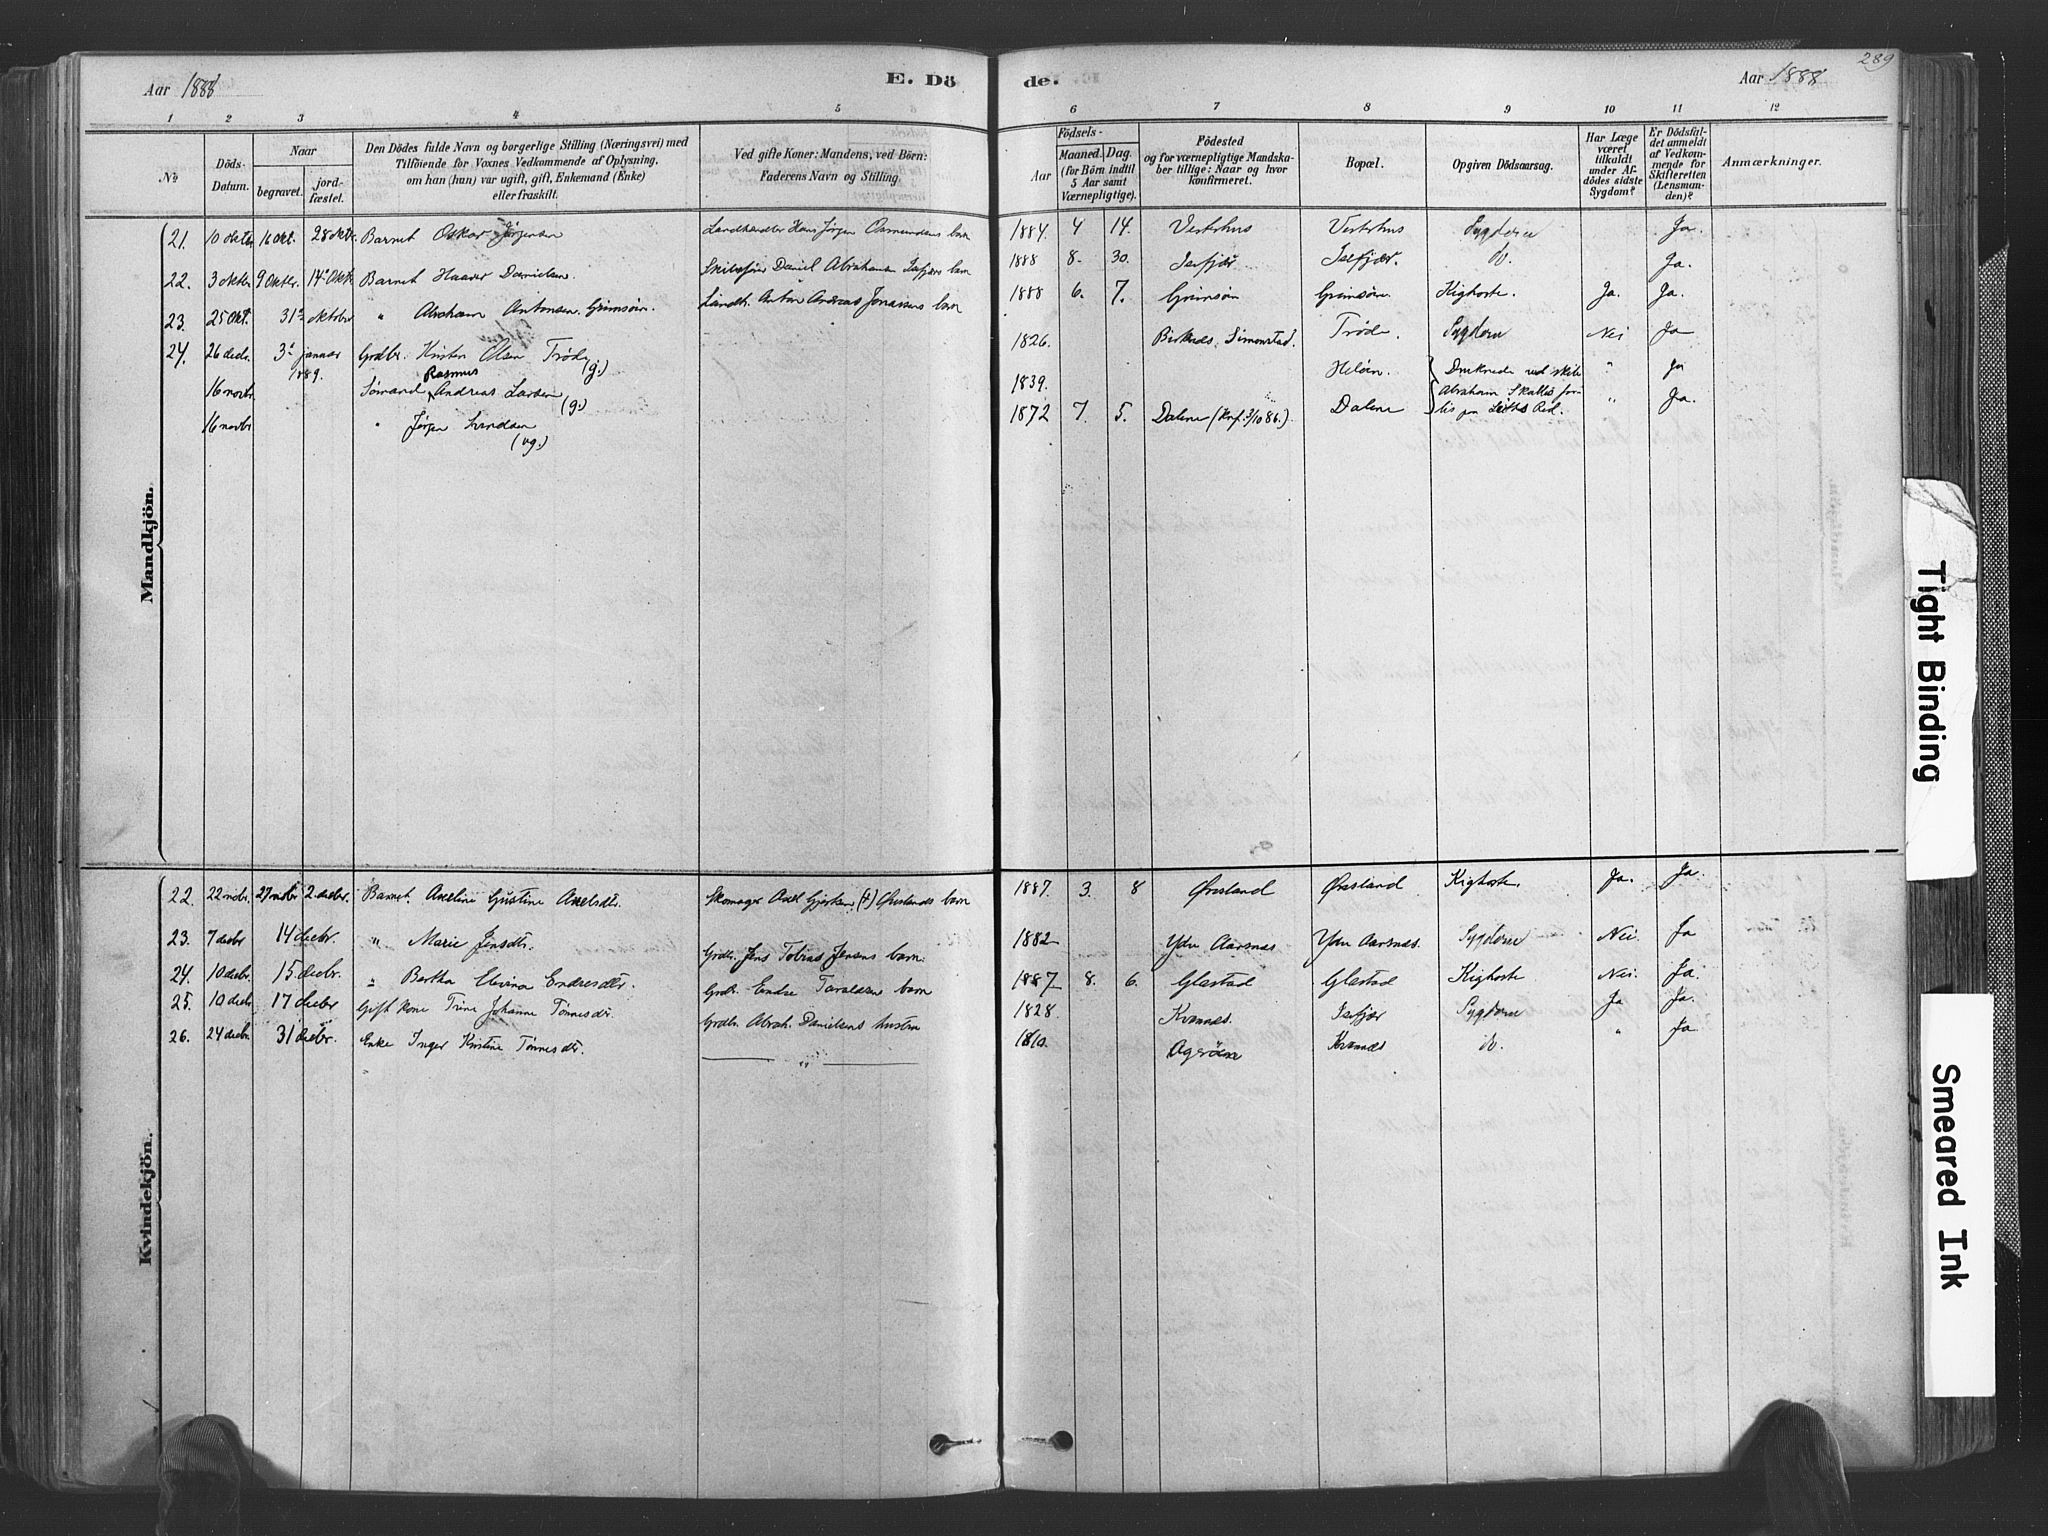 Aar 1888
E. Dö
de.
Aar 1888
289
1 2 3 4 5 6 7 8 9 10 11 12
No
Döds-Datum.
Naar
begravet.
jord-fæstet.
Den Dödes fulde Navn og borgerlige Stilling (Næringsvei) med
Tilföiende for Voxnes Vedkommende af Oplysning,
om han (hun) var ugift, gift, Enkemand (Enke)
eller fraskilt.
Ved gifte Koner: Mandens, ved Börn:
Faderens Navn og Stilling
Födsels-
Aar
Maaned. Dag.
(for Börn indtil
5 Aar samt
Værnepligtige).
Födested
og for værnepligtige Mandska-
ber tillige: Naar og hvor
konfirmeret.
Bopæl.
Opgiven Dödsaarsag.
Har Læge
været
tilkaldt
under Af-
dödes sidste
Sygdom?
Er Dödsfal-
det anmeldt
af Vedkom-
mende for
Skifteretten
(Lensman-
den)?
Anmærkninger.
Mandkjön.
21. 10 oktbr 16 okt. 28 oktr. Barnet Oskar Jörgensen Landhandler Hans Jörgen Osmundsens barn 1884. 4 14. Vesterhus Vesterhus Sygdom Ja.
22. 3 oktbr 9 oktbr. 14 Okt. Barnet Haaver Danielsen. Skibsförer Daniel Abrahamsen Isefjærs barn 1888 8. 30. Isefjær Isefjær. do. Ja.
23. 25 Okt. 31 oktober " Abraham Antonsen Grimsöen. Landh. Anton Andreas Jonassens barn 1888 6. 7. Grimsöen Grimsöen. Kighoste. Ja. Ja.
24. 26 decbr. 3 januar 1889. Grdbr. Kristen Olsen Tröde (g.) 1826. Birknæs, Simonstad. Tröde. Sygdom Nei Ja
16 novbr. Sømand Rasmus Andreas Larsen (g.) 1839. Helöen. Druknede ved skib " Ja
16 novbr " Jörgen Svendsen (ug.) 1872 7. 5. Dalene (Knf. 3/10 86.) Dalene Abraham Skalles forlis paa Red. " Ja.
Kvindekjön.
22. 22 novbr. 27 novbr 2 decbr. Barnet Axeline Gustine Axelsdtr. Skomager Axel (+) Øreslands barn 1887. 3. 8 Øresland Øresland Kighoste. Ja. Ja.
23. 7 decbr 14 decbr. " Marie Jensdtr. Grdbr. Jens Tobias Jensens barn. 1882 Ydre Aarsnæs Ydre Aarsnæs. Sygdom Nei. Ja
24. 10 decbr. 15 decbr. " Bertha Elevine Endresdtr. Grdbr. Endre Taraldsen barn 1887 8. 6. Glastad Glastad Kighoste Nei. Ja.
25. 10 decb. 17 decbr Gift kone Trine Johanne Tönnesdtr. Grdbr. Abrah. Danielsens hustru 1828. Kvanæs. Isefjær Sygdom Ja Ja.
26. 24 decbr. 31 decbr. Enke Inger Kristine Tönnesdtr. " 1810. Ageröen Kvanæs do. " Ja
Tight Binding
Smeared Ink